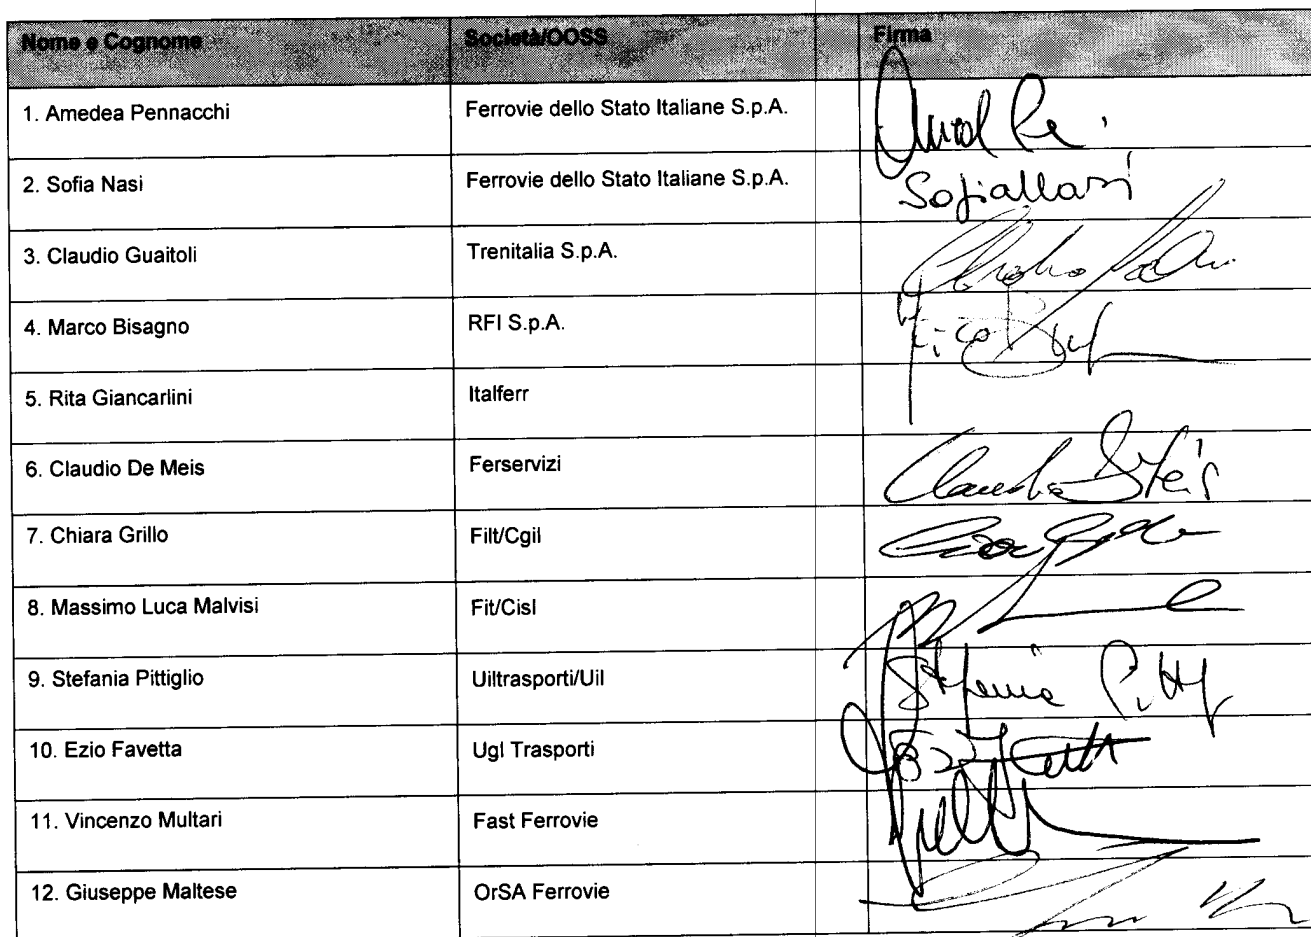 Nome e Cognome Società/OOSS Firma
1. Amedea Pennacchi Ferrovie dello Stato Italiane S.p.A.
2. Sofia Nasi Ferrovie dello Stato Italiane S.p.A. Sofia Nasi
3. Claudio Guaitoli Trenitalia S.p.A.
4. Marco Bisagno RFI S.p.A.
5. Rita Giancarlini Italferr
6. Claudio De Meis Ferservizi
7. Chiara Grillo Filt/Cgil
8. Massimo Luca Malvisi Fit/Cisl
9. Stefania Pittiglio Uiltrasporti/Uil Stefania
10. Ezio Favetta Ugl Trasporti
11. Vincenzo Multari Fast Ferrovie
12. Giuseppe Maltese OrSA Ferrovie